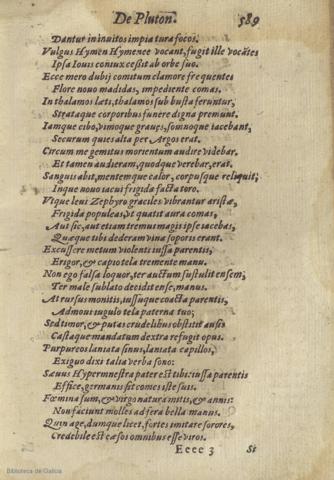 De Pluton.
589
Dantur in inuitos impia tura focos.
Vulgus Hymen Hymenee vocant, fugit ille vocātes
Ipsa Iouis coniux cessit ab orbe suo.
Ecce mero dubij comitum clamore frequentes
Flore nouo madidas, impediente comas.
In thalamos læti, thalamos sub busta feruntur,
Strataque corporibus funere digna premunt.
Iamque cibo, vimoque graues, somnoque iacebant,
Securum quies alta per Argos erat.
Circum me gemitus morientum audire videbar,
Et tamen audieram, quodque verebar, erat.
Sanguis abit, mentemque calor, corpusque reliquit;
Inque nouo iacui frigida facta toro.
Vt que leui Zephyro graciles vibrantur aristæ,
Frigida populeas, vt quatit aura comas,
Aut sic, aut etiam tremus magis ipse iacebas,
Quæque tibi dederam vina soporis erant.
Excussere metum violenti iussa parentis,
Erigor, & capio tela tremente manu.
Non ego falsa loquor, ter auctum sustulit ensem,
Ter male sublato decidit ense, manus.
At rursus monitis, iussuque coacta parentis,
Admoui iugulo tela paterna tuo;
Sed timor, & putas crudelibus obstitit ausis
Castaque mandatum dextra refugit opus.
Purpureos laniata sinus, laniata capillos,
Exiguo dixi talia verba sono:
Sæuus Hypermnestra pater est tibi: iussa parentis
Effice, germanis sit comes iste suis.
Fœmina sum, & virgo natura mitis, & annis:
Non faciunt molles ad fera bella manus.
Quin age, dumque licet, fortes imitare sorores,
Credebile est cæsos omnibus esse viros.
Eccc 3
Si
Biblioteca de Galicia